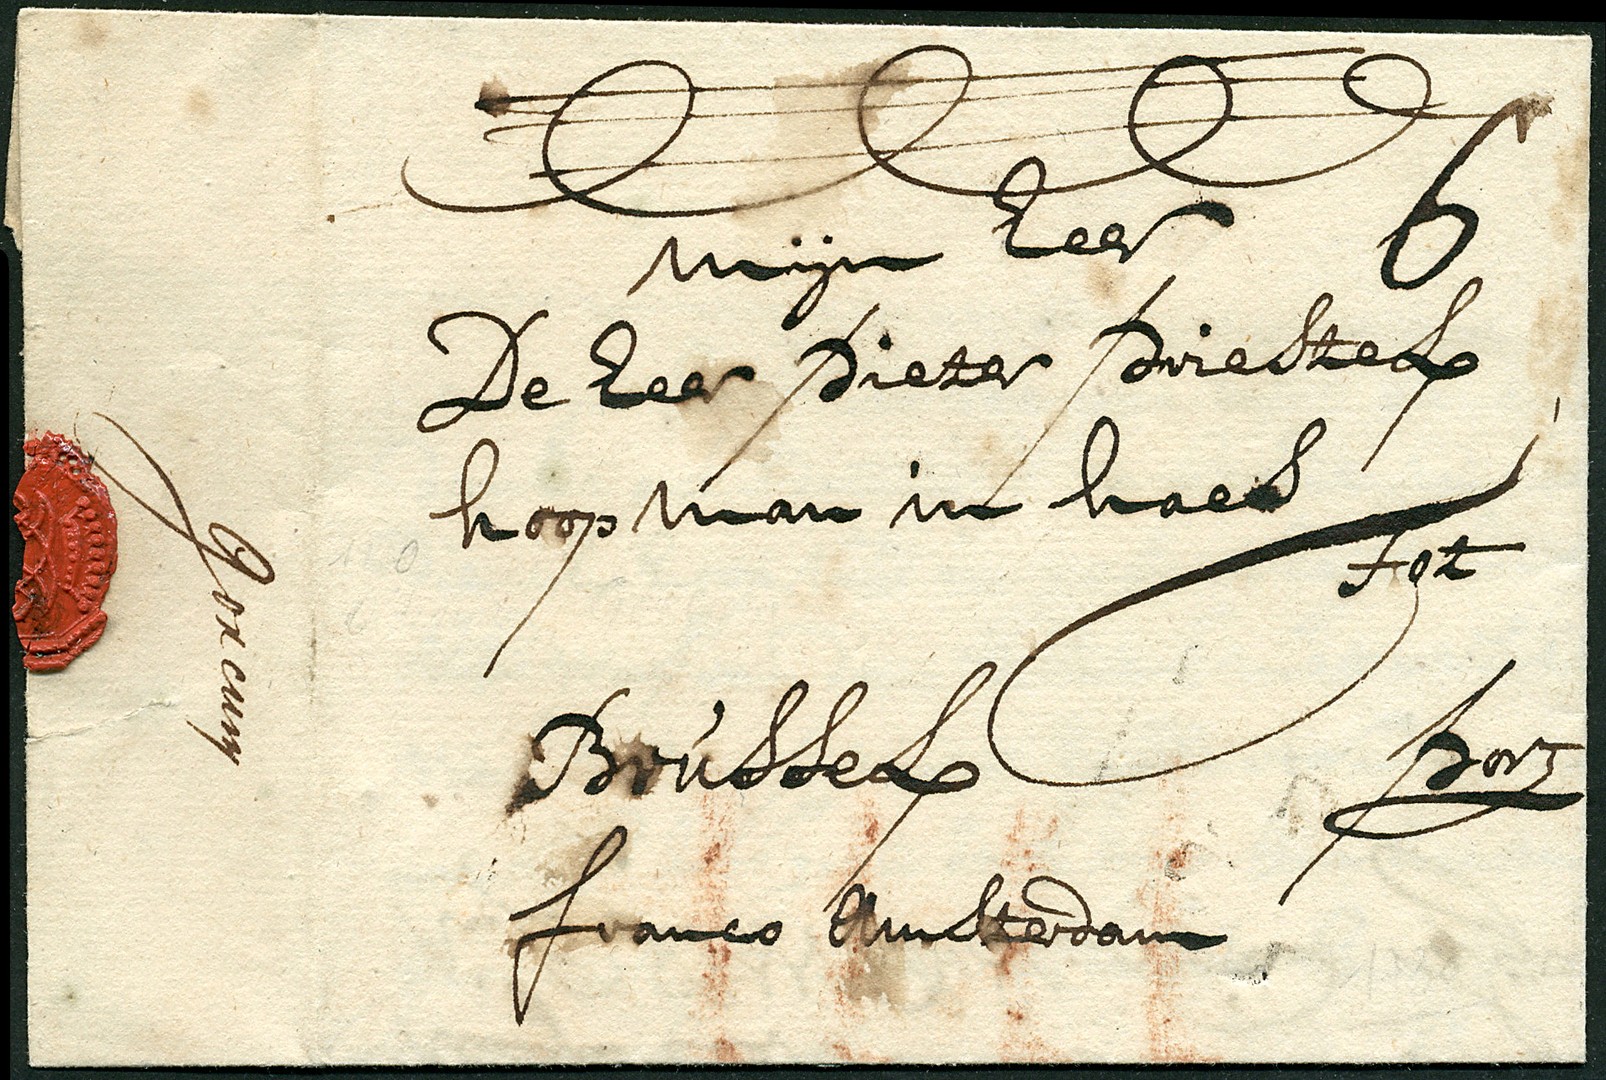 6
mijn Heer
De Heer Pieter Priestel
koopman in kaes
tot
Brussel
port
franco Amsterdam
Gorcum